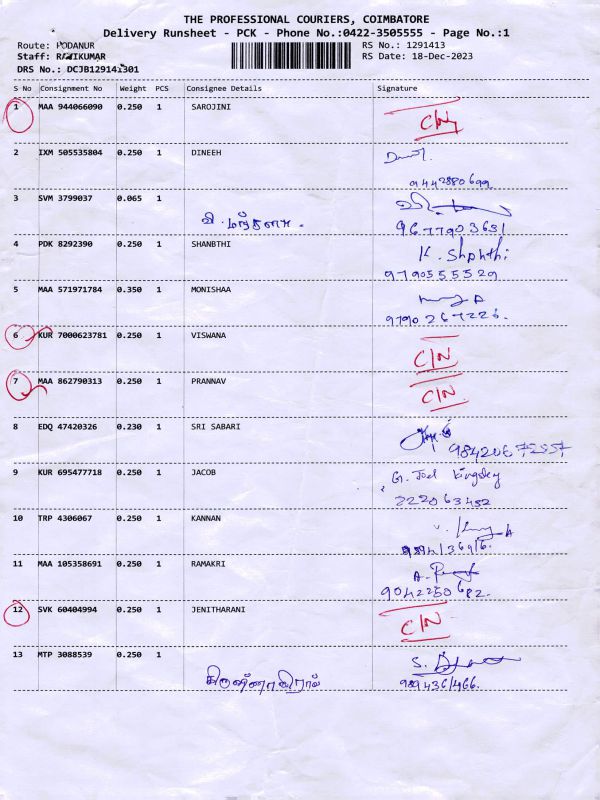 THE PROFESSIONAL COURIERS, COIMBATORE
Delivery Runsheet - PCK - Phone No.:0422-3505555 - Page No.:1
Route: PODANUR RS No.: 1291413
Staff: RAJIKUMAR RS Date: 18-Dec-2023
DRS No.: DCJB1291413301
S No Consignment No Weight PCS Consignee Details Signature
1 MAA 944066090 0.250 1 SAROJINI
C/N
2 IXM 505535804 0.250 1 DINEEH
9442880699
3 SVM 3799037 0.065 1
9677903631
4 PDK 8292390 0.250 1 SHANBTHI K. Shphthi
9790555529
5 MAA 571971784 0.350 1 MONISHAA
9790267226.
6 KUR 7000623781 0.250 1 VISWANA
C/N
7 MAA 862790313 0.250 1 PRANNAV
C/N
8 EDQ 47420326 0.230 1 SRI SABARI
9 KUR 695477718 0.250 1 JACOB G. Joel Kingsley
222063452
10 TRP 4306067 0.250 1 KANNAN
11 MAA 105358691 0.250 1 RAMAKRI
9042250682.
12 SVK 60404994 0.250 1 JENITHARANI
C/N
13 MTP 3088539 0.250 1